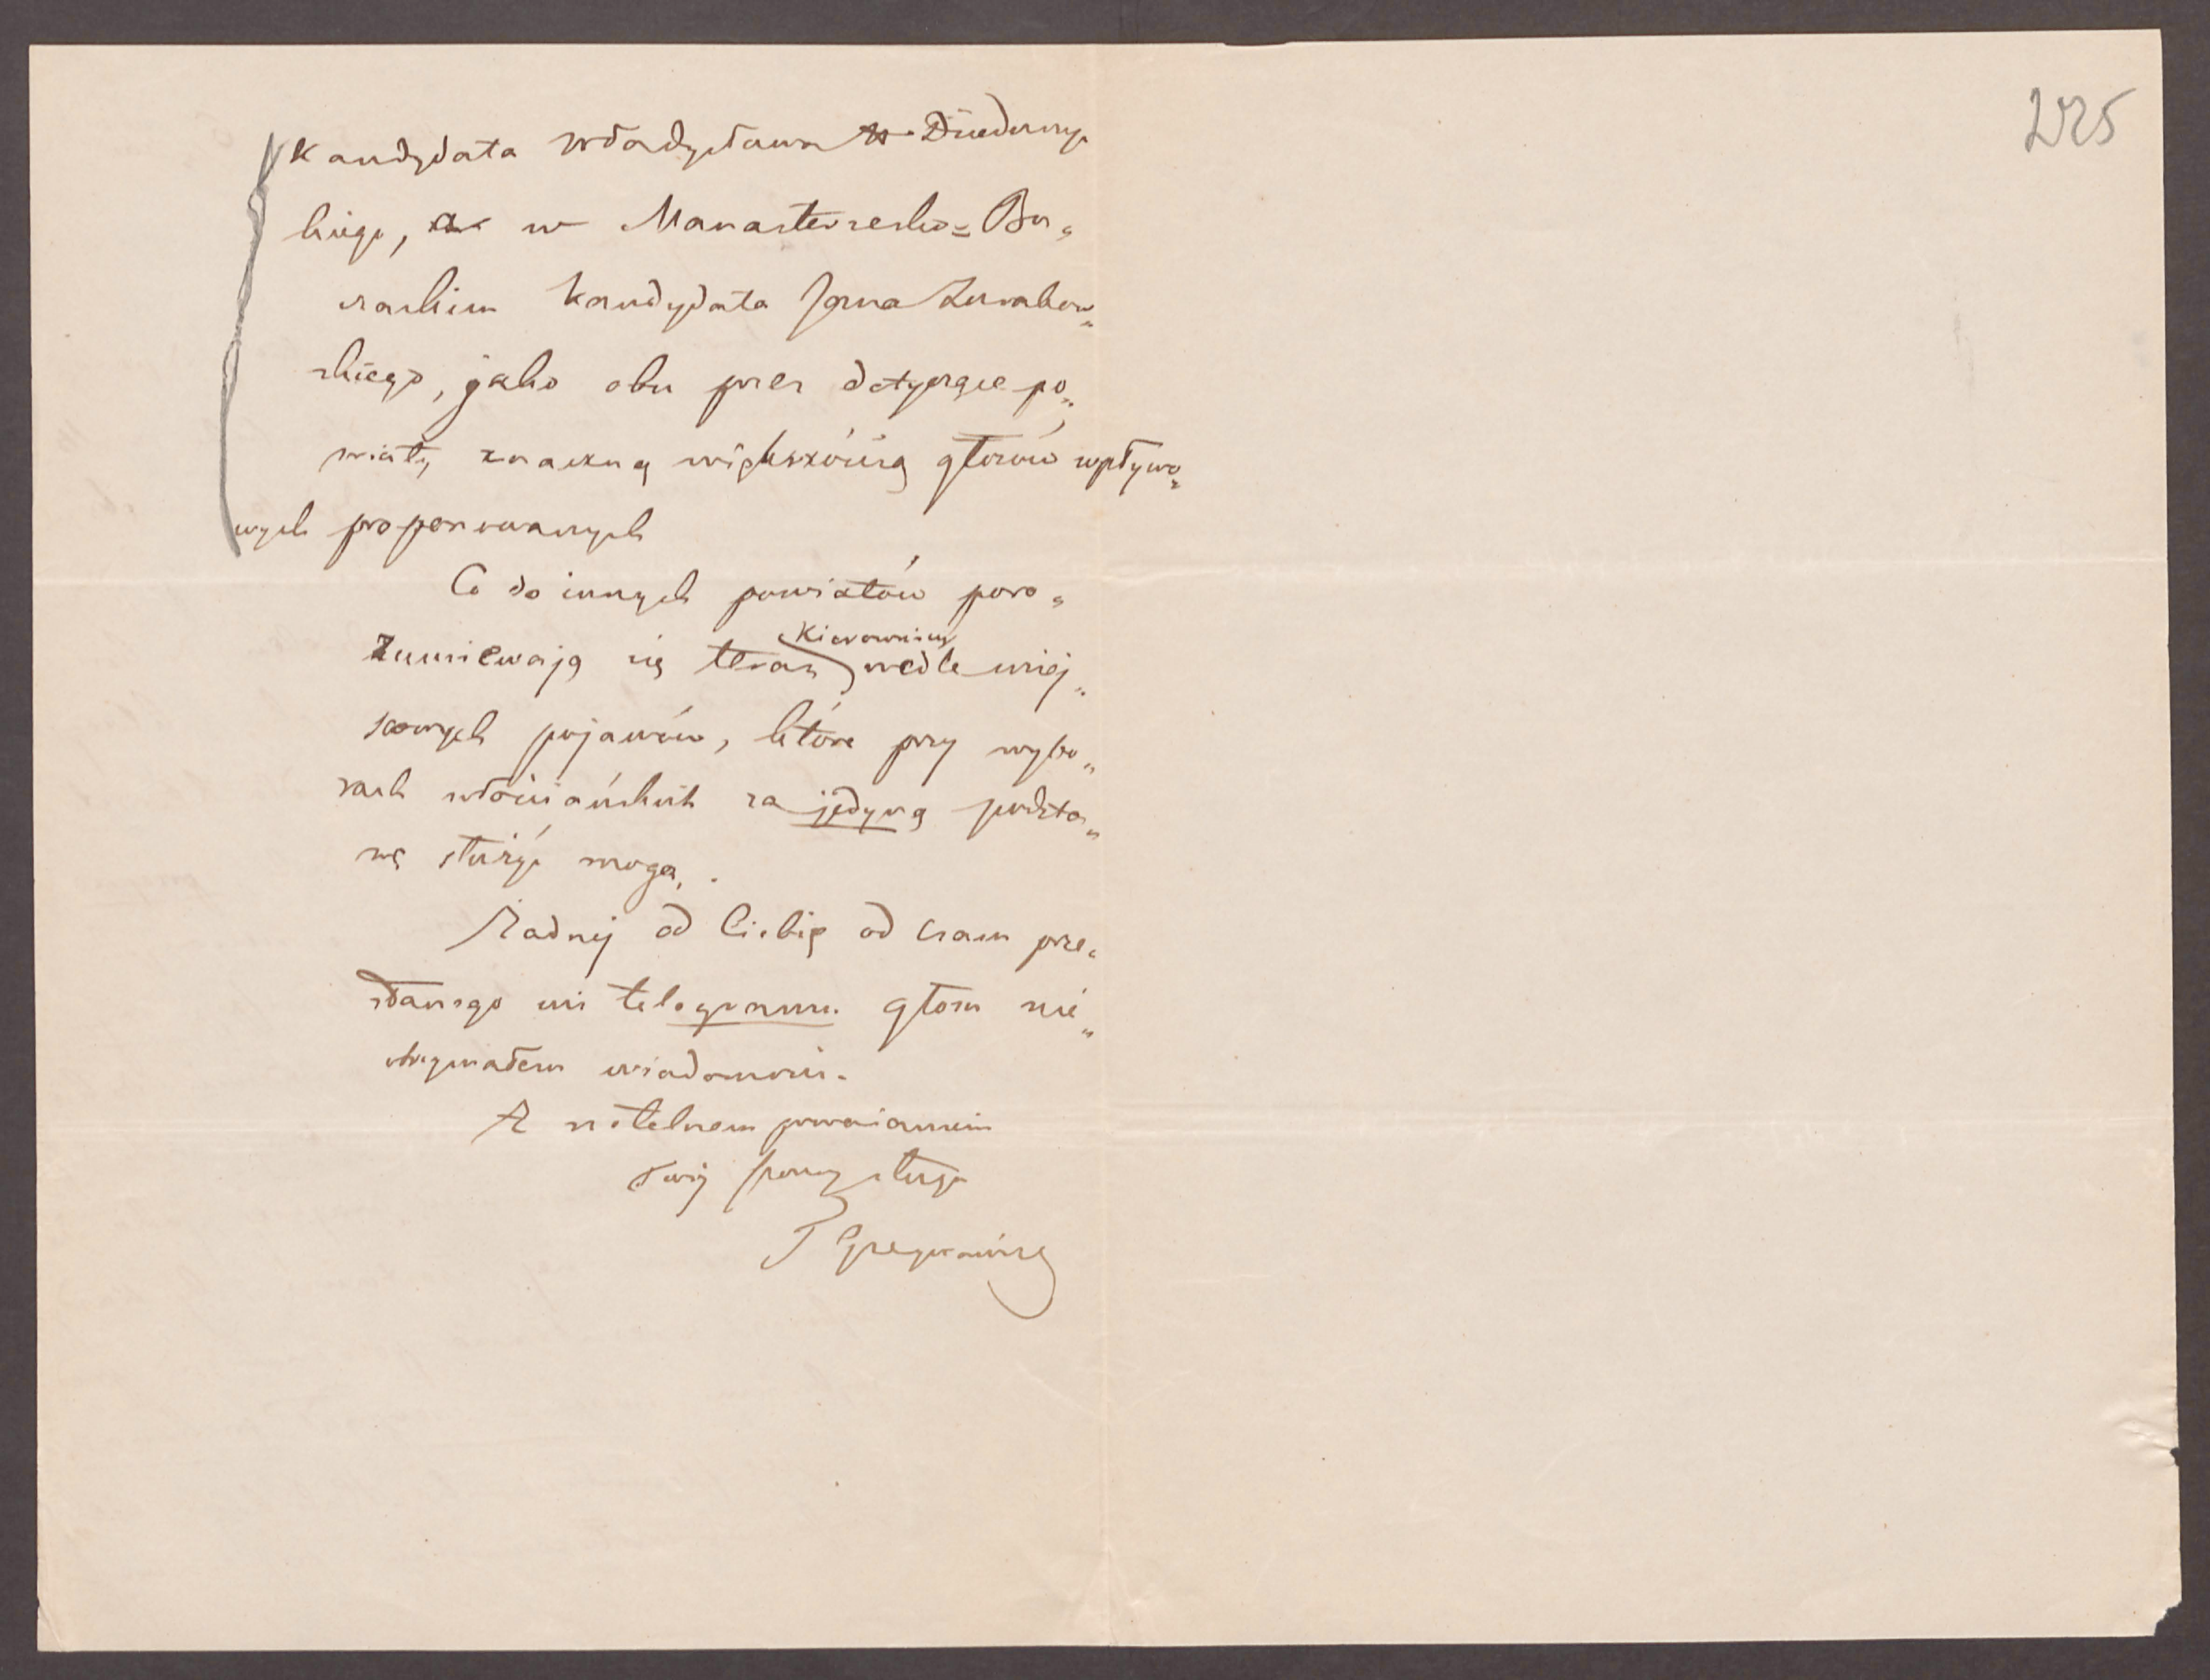 225
Kandydata Władysława Dzieduszy
kiego, a w Manasterzesko= Bu„
czackim kandydata Jana Żurakow„
skiego, jako obu przez dotyczące po„
wiaty znaczną większością głosów wpływo„
wych proponowanych
Co do innych powiatów poro„
zumiewają się teraz Kierownicy wedle miej„
scowych pojawów, które przy wybo„
rach włościańskich za jedyną podsta„
wę służyć mogą.
Żadnej od Ciebie od czasu prze„
słanego mi telegramu głosu nie„
otrzymałem wiadomości.
Z rzetelnem poważaniem
Twój szczery sługa